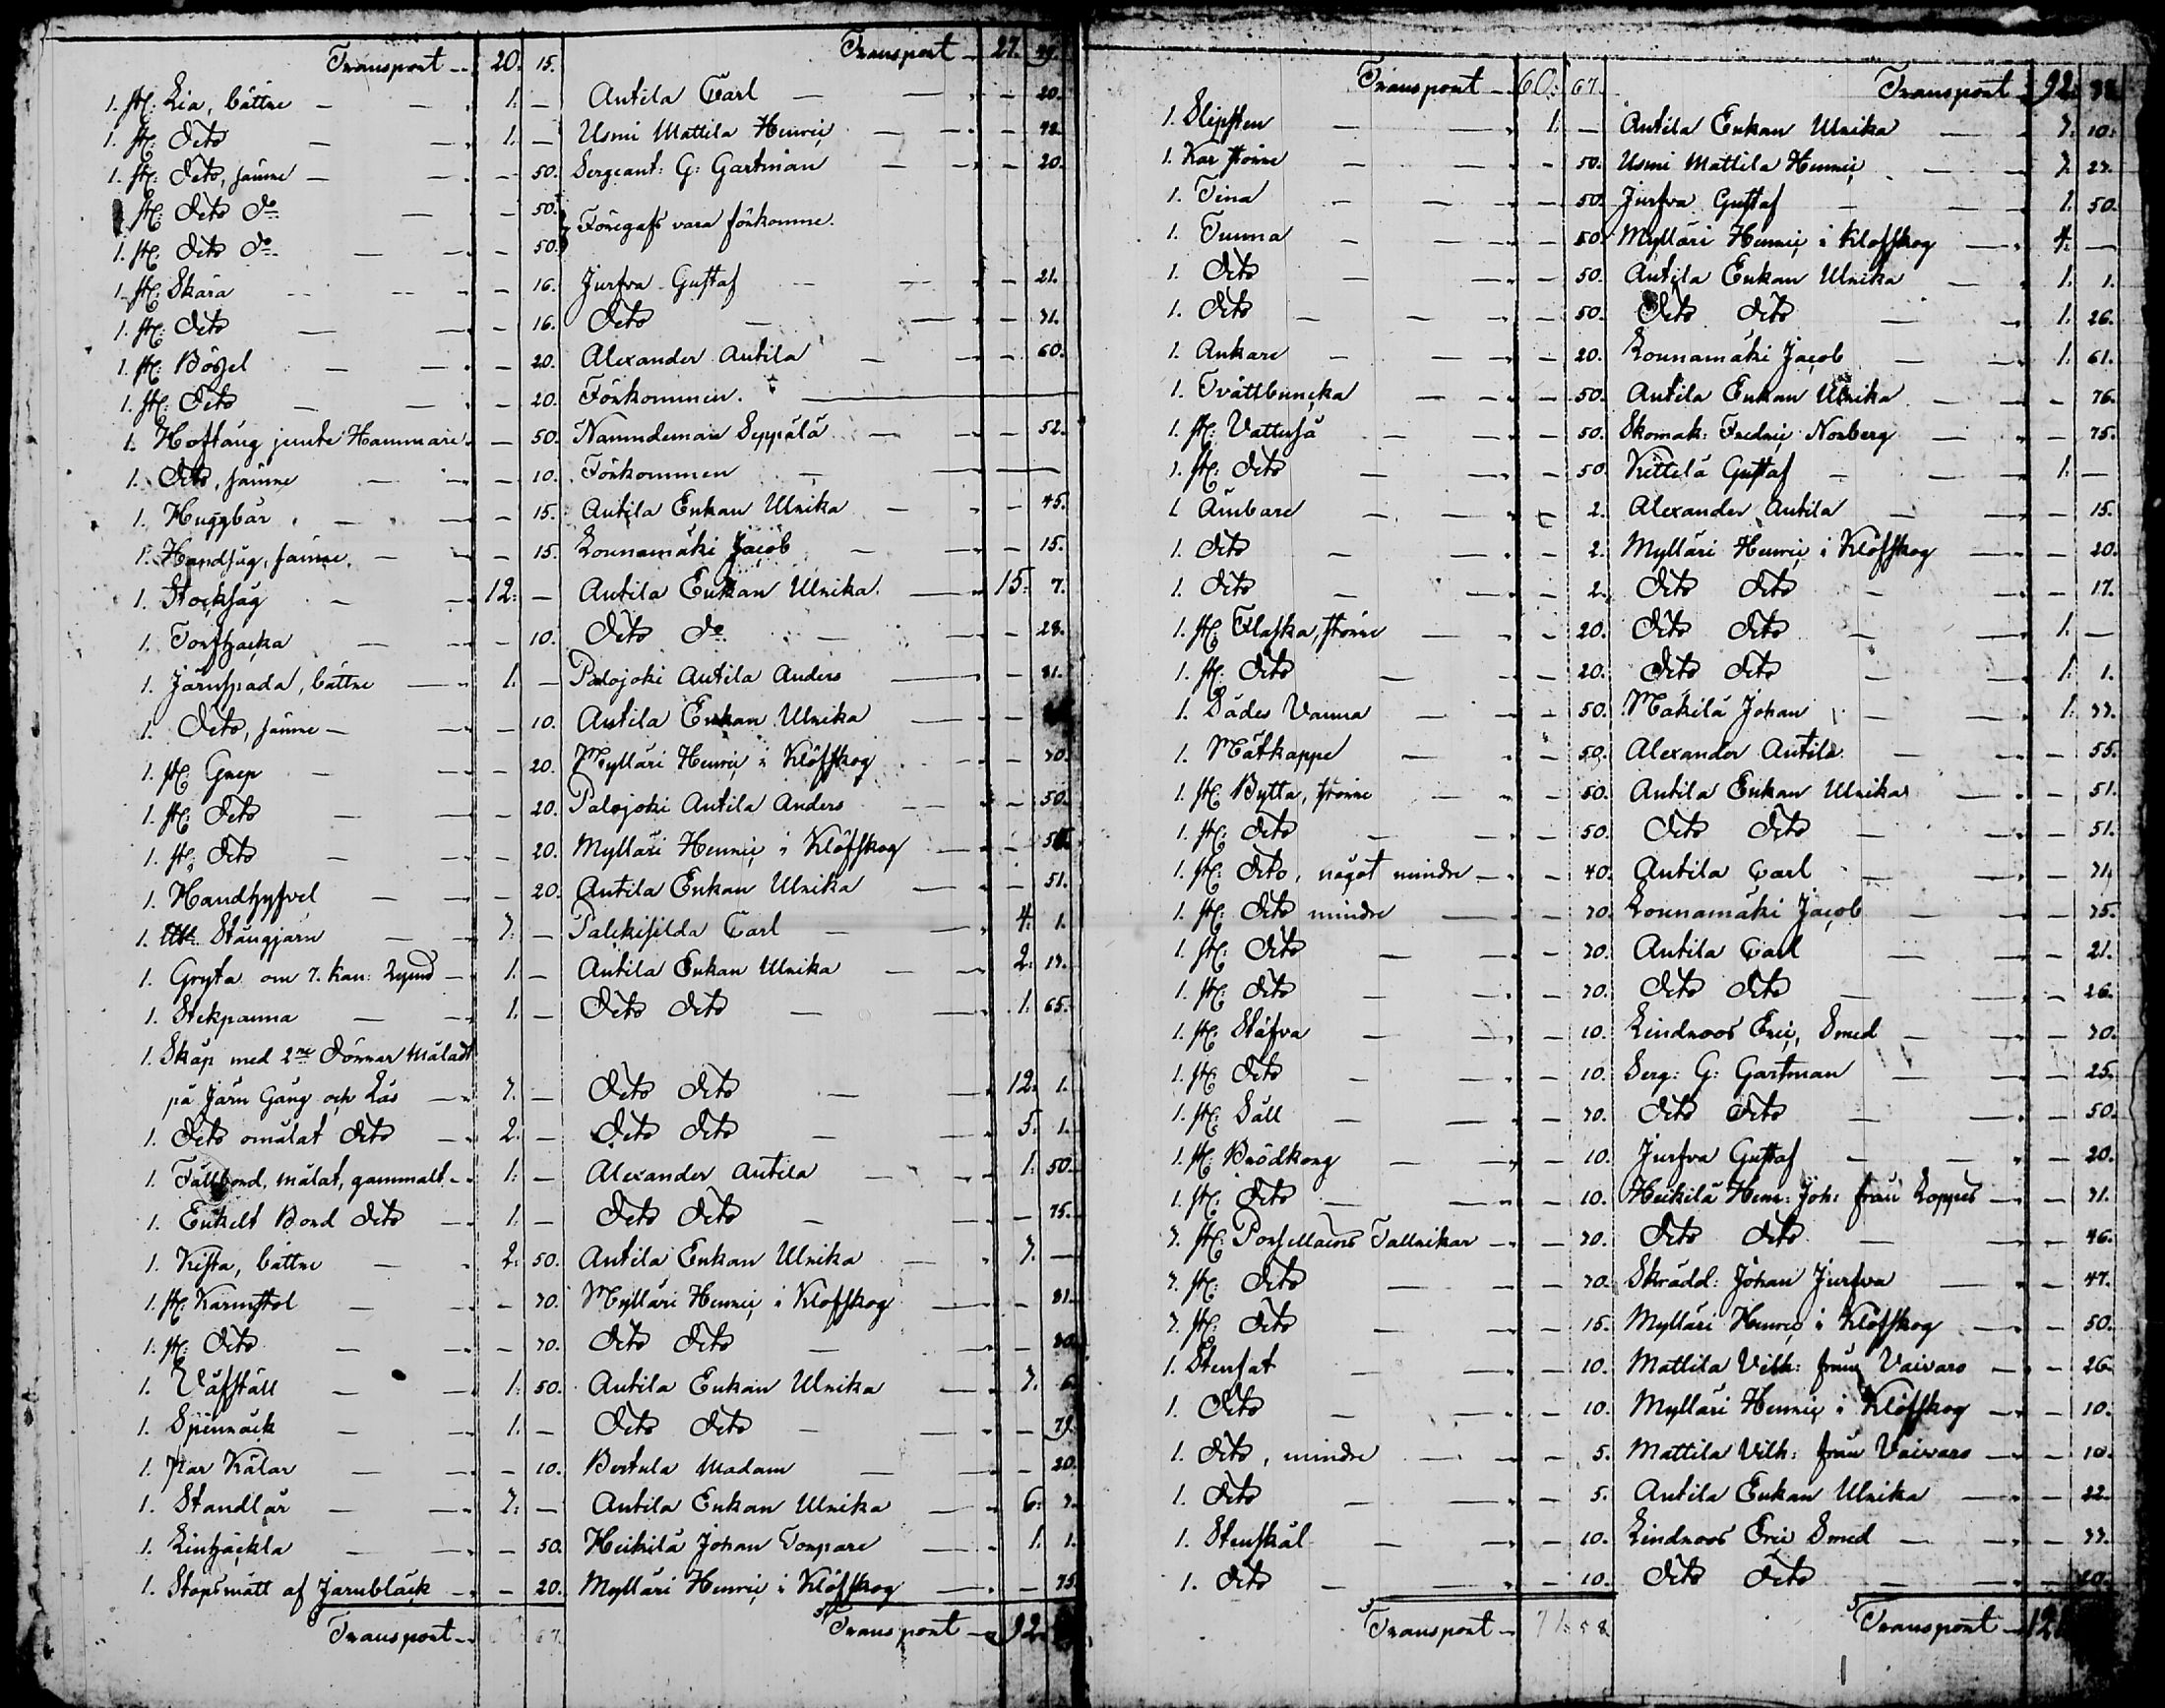 Transport 20. 15. Transport 27.
1. st: Lia, bättre 1. — Antila Carl — 20.
1. st: Dito 1. — Usmi Mattila Henric —
1. st: Dito, sämre — 50. Sergeant: G: Gartman — 20.
st: Dito Do — 50.
Föregafs vara förkomne.
1. st: Dito Do — 50.
1. st: Skära — 16. Jurfva Gustaf — 21.
1. st: Dito — 16. Dito — 31.
1. st: — 20. Alexander Antila — 60.
1. st: Dito — 20. Förkommin.
1. Hoftång jemte Hammare — 50. Nämndeman Seppälä — 52.
1. Dito, sämre — 10. Förkommen —
1. Huggbär — 15. Antila Enkan Ulrika — 45.
1. Handsåg, sämre — 15. Lounamäki Jacob — 15.
1. Stocksåg 12. — Antila Enkan Ulrika 15. 7.
1. Torfhacka — 10. Dito Do — 28.
1. Järnspada, bättre 1. — Palojoki Antila Anders — 81.
1. Dito, sämre — 10. Antila Enkan Ulrika —
1. st: Grep — 20. Mylläri Henric i Klöfskog — 30.
1. st: Dito — 20. Palojoki Antila Anders — 50.
1. st: Dito — 20. Mylläri Henric i Klöfskog —
1. Handhyfvel — 20. Antila Enkan Ulrika — 51.
1. Stångjärn 3. — Carl 4. 1.
1. Gryta om 3. kan: Rymd 1. — Antila Enkan Ulrika 2. 13.
1. Stekpanna 1. — Dito Dito 1. 65.
1. Skåp med 2ne Dörrar Måladt
på Järn Gång och Lås 3. — Dito Dito 12. 1.
1. Dito omålat Dito 2. — Dito Dito 5. 1.
1. Fällbord, målat, gammalt 1. — Alexander Antila 1. 50.
1. Enkelt Bord Dito 1. — Dito Dito — 75.
1. Kista, bättre 2. 50. Antila Enkan Ulrika 3. —
1. st: Karmstol — 30. Mylläri Henric i Klöfskog — 81.
1. st: Dito — 30. Dito Dito —
1. Väfställ 1. 50. Antila Enkan Ulrika 3. 6.
1. Spinnrack 1. — Dito Dito —
1. Par Kälar — 10. Bertula Madam — 20.
1. Standlår 3. — Antila Enkan Ulrika 6. 3.
1. Linhäckla — 50. Heikilä Johan Torpare 1. 1.
1. Stopsmått af Järnbläck — 20. Mylläri Henric i Klöfskog — 75.
Transport 67. Transport 92.
Transport 60. 67. Transport 92.
1. Slipsten 1. — Antila Enkan Ulrika 3. 10.
1. Kar större — 50. Usmi Mattila Henric 3. 23.
1. Tina — 50. Jurfva Gustaf 1. 50.
1. Tunna — 50. Mylläri Henric i Klöfskog 4. —
1. Dito — 50. Antila Enkan Ulrika 1. 1.
1. Dito — 50. Dito Dito 1. 26.
1. Ankare — 20. Lounamäki Jacob 1. 61.
1. Tvättbuncka — 50. Antila Enkan Ulrika — 76.
1. st: Vattuså — 50. Skomak: Fredric Norberg — 75.
1. st: Dito — 50. Kittilä Gustaf 1. —
1. Ämbare — 2. Alexander Antila — 15.
1. Dito — 2. Mylläri Henric i Klöfskog — 20.
1. Dito — 2. Dito Dito — 17.
1. st: Flaska, större — 20. Dito Dito 1. —
1. st: Dito — 20. Dito Dito 1. 1.
1. Sädes Vanna — 50. Mäkilä Johan 1. 33.
1. Mätkappe — 50. Alexander Antila — 55.
1. st: Bytta, större — 50. Antila Enkan Ulrika — 51.
1. st: Dito — 50. Dito Dito — 51.
1. st: Dito, något mindre — 40. Antila Carl — 31.
1. st: Dito mindre — 30. Lounamäki Jacob — 35.
1. st: Dito — 30. Antila Carl — 21.
1. st: Dito — 30. Dito Dito — 26.
1. st: Stäfva — 10. Lindroos Eric, Smed — 30.
1. st: Dito — 10. Serg: G: Gartman — 25.
1. st: Såll — 30. Dito Dito — 50.
1. st: Brödkorg — 10. Jurfva Gustaf — 20.
1. st: Dito — 10. Heikilä Henr: Joh: från Loppis — 31.
3. st: Porsellains Tallrikar — 30. Dito Dito — 46.
3. st: Dito — 30. Skrädd: Johan Jurfva — 47.
3. st: Dito — 15. Mylläri Henric i Klöfskog — 50.
1. Stenfat — 10. Mattila Vilh: från Vaivaro — 26.
1. Dito — 10. Mylläri Henric i Klöfskog — 10.
1. Dito, mindre — 5. Mattila Vilh: från Vaivaro — 10.
1. Dito — 5. Antila Enkan Ulrika — 22.
1. Stenskål — 10. Lindroos Eric Smed — 33.
1. Dito — 10. Dito Dito —
Transport 71. 58. Transport